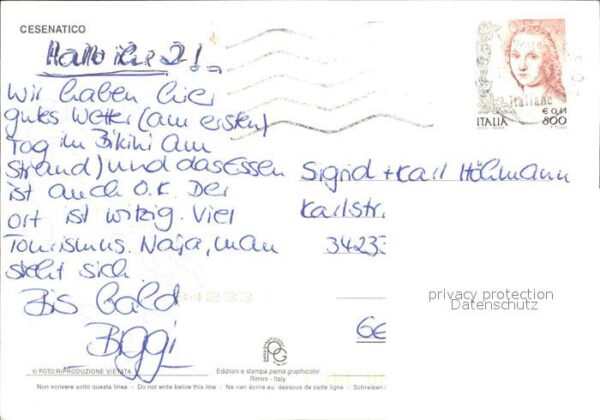 CESENATICO
Hallo ihr 2!
Wir haben hier
gutes Wetter (am ersten)
Tag im Bikini am
Strand) und das Essen
ist auch O.K. Der
Ort ist witzig. Viel
Tourismus. Naja, man
sieht sich.
Bis bald
Biggi
ITALIA
€ 0,41
800
Italiane
Sigrid + Karl Höhmann
Karlstr.
34233
privacy protection
Datenschutz
34233
© FOTO RIPRODUZIONE VIETATA
Edizioni e stampa pama graphicolor
Rimini - Italy
Non scrivere sotto questa linea - Do not write below this line - Ne rien écrire au dessous de cette ligne - Schreiben